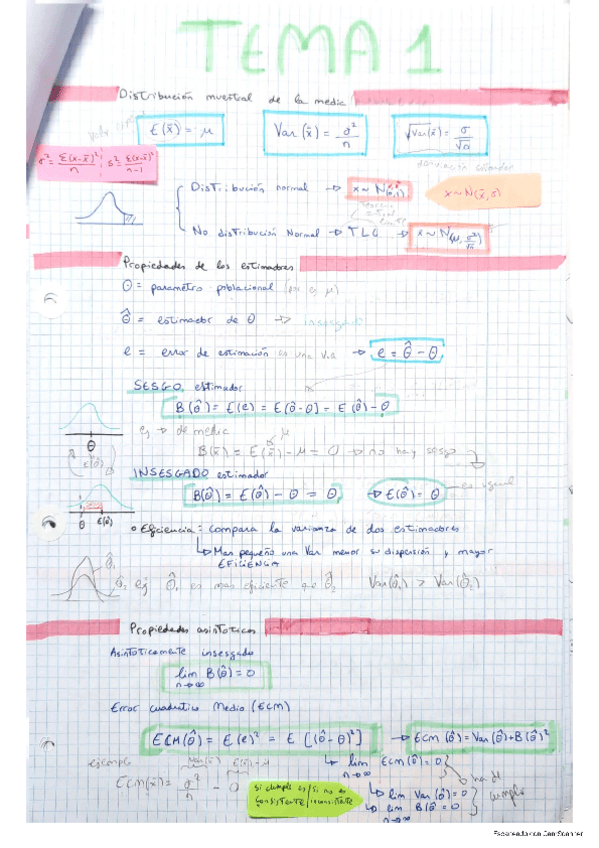 TEMA 1
Distribución muestral de la media
E(x̄) = μ
Var(x̄) = σ²/n
√Var(x̄) = σ/√n
σ² = Σ(x-x̄)²/n
s² = Σ(x-x̄)²/n-1
Distribución normal →
x ~ N(x̄, s)
No distribución Normal → TLC →
Propiedades de los estimadores
θ = parámetro poblacional
θ̂ = estimador de θ → insesgado
e = error de estimación es una v.a → e = θ̂ - θ
SESGO estimador
B(θ̂) = E(e) = E[θ̂-θ] = E(θ̂)-θ
ej → de media μ
B(x̄) = E(x̄) - μ = 0 → no hay sesgo
θ
E(θ̂)
INSESGADO estimador
B(θ̂) = E(θ̂) - θ = 0 → E(θ̂) = θ
es igual
θ E(θ̂)
Eficiencia = compara la varianza de dos estimadores
Mas pequeño una Var menor su dispersión y mayor
EFICIENCIA
θ̂₁
θ̂₂ ej θ̂₁ es mas eficiente que θ̂₂ Var(θ̂₁) > Var(θ̂₂)
Propiedades asintoticas
Asintoticamente insesgado
lim B(θ̂) = 0
n→∞
Error cuadratico Medio (ECM)
ECM(θ̂) = E(e)² = E[(θ̂-θ)²] → ECM(θ̂) = Var(θ̂)+B(θ̂)²
lim ECM(θ̂) = 0
n→∞
ejemplo
ECM(x̄) = σ²/n - 0
si cumple es / si no es
consistente / inconsistente
lim Var(θ̂) = 0
lim B(θ̂) = 0
n→∞
ha de
cumplir
Escaneado con CamScanner